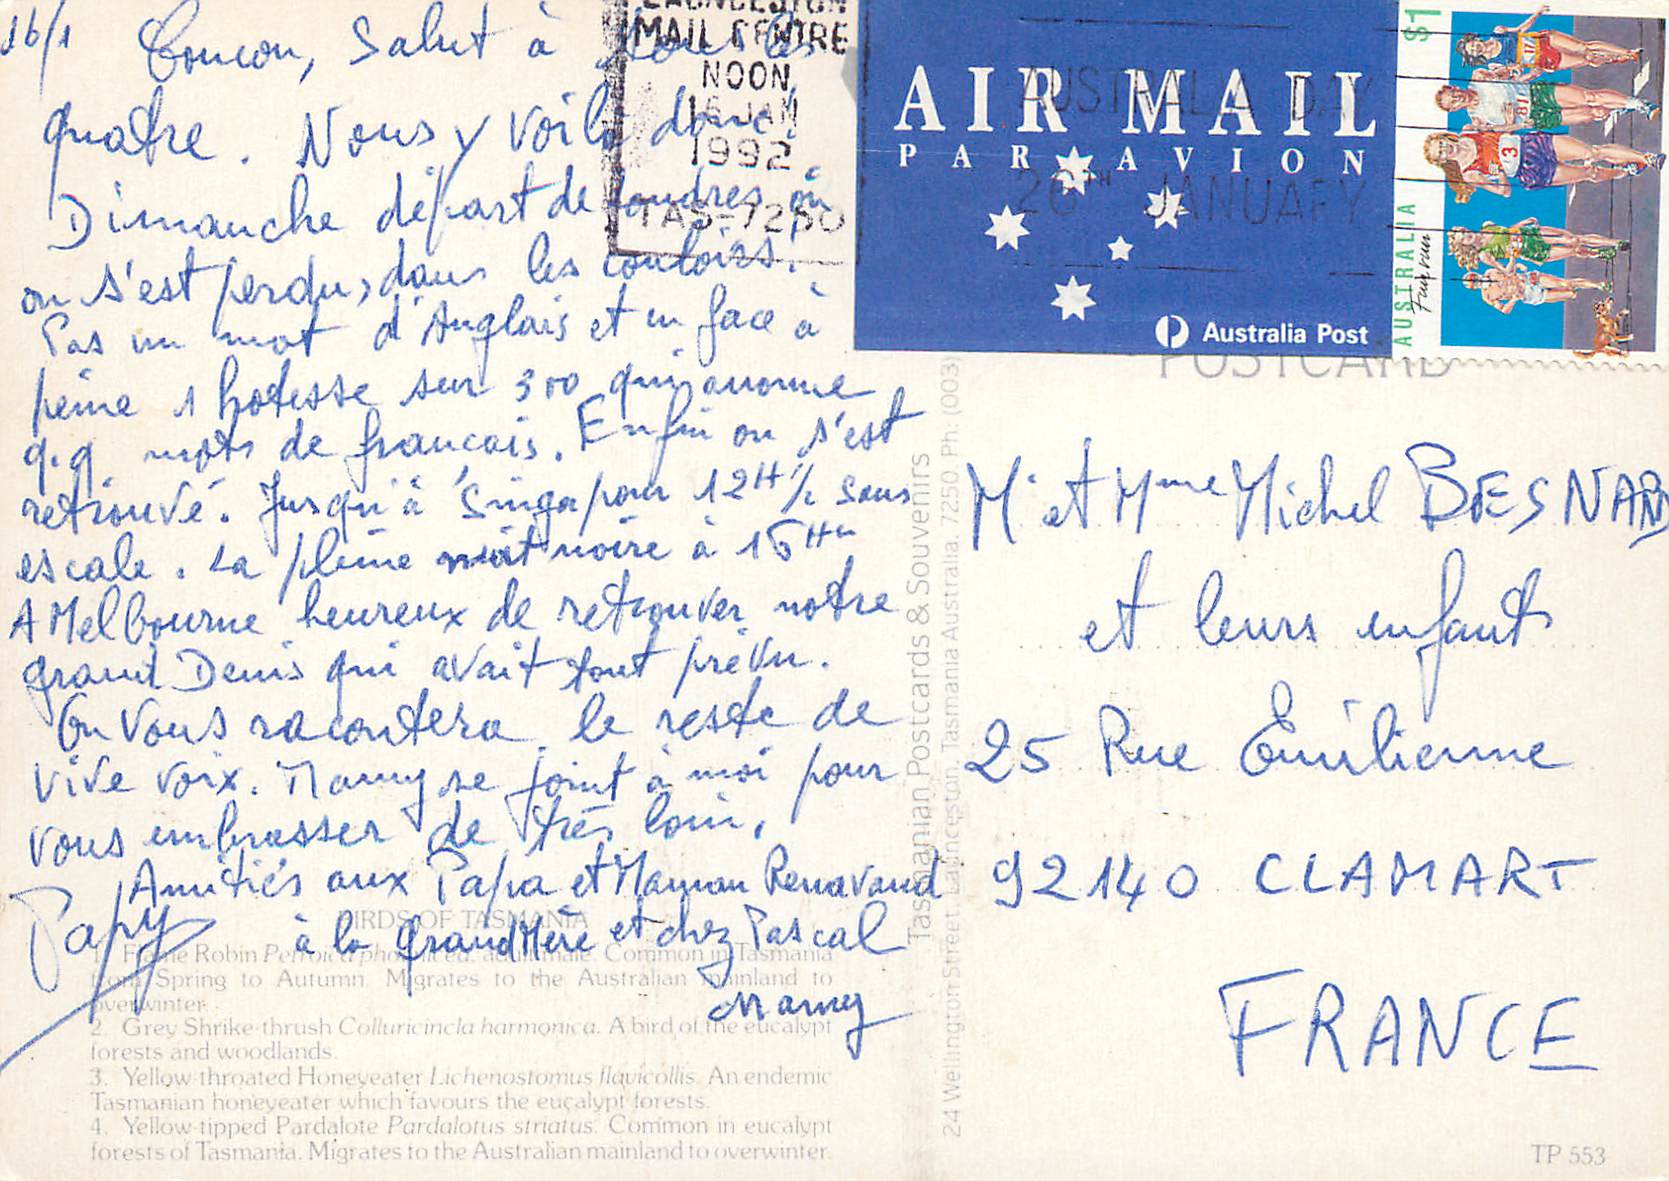 16/1 Coucou, Salut à tous les
quatre. Nous y voilà donc.
Dimanche départ de Londres où
on s'est perdu, dans les couloirs.
Pas un mot d'Anglais et en face à
peine 1 hotesse sur 300 qui anonne
q.q. mots de français. Enfin on s'est
retrouvé. Jusqu'à Singapour 12H½ sans
escale. La pleine nuit noire à 16H
A Melbourne heureux de retrouver notre
grand Denis qui avait tout prévu.
On vous racontera le reste de
vive voix. Mamy se joint à moi pour
vous embrasser de très loin.
Amitiés aux Papa et Maman Renavand
à la grand Mère et chez Pascal
Papy
Mamy
LAUNCESTON
MAIL CENTRE
NOON
16 JAN
1992
TAS-7250
AUSTRALIA DAY
26TH JANUARY
AIR MAIL
PAR AVION
Australia Post
$1
AUSTRALIA
Fun run
POSTCARD
Mr et Mme Michel BESNARD
et leurs enfants
25 Rue Emilienne
92140 CLAMART
FRANCE
Tasmanian Postcards & Souvenirs
24 Wellington Street, Launceston, Tasmania Australia. 7250 Ph: (003)
BIRDS OF TASMANIA
1. Flame Robin Petroica phoenicea, adult male. Common in Tasmania
from Spring to Autumn. Migrates to the Australian mainland to
overwinter.
2. Grey Shrike-thrush Colluricincla harmonica. A bird of the eucalypt
forests and woodlands.
3. Yellow-throated Honeyeater Lichenostomus flavicollis. An endemic
Tasmanian honeyeater which favours the eucalypt forests.
4. Yellow-tipped Pardalote Pardalotus striatus. Common in eucalypt
forests of Tasmania. Migrates to the Australian mainland to overwinter.
TP 553